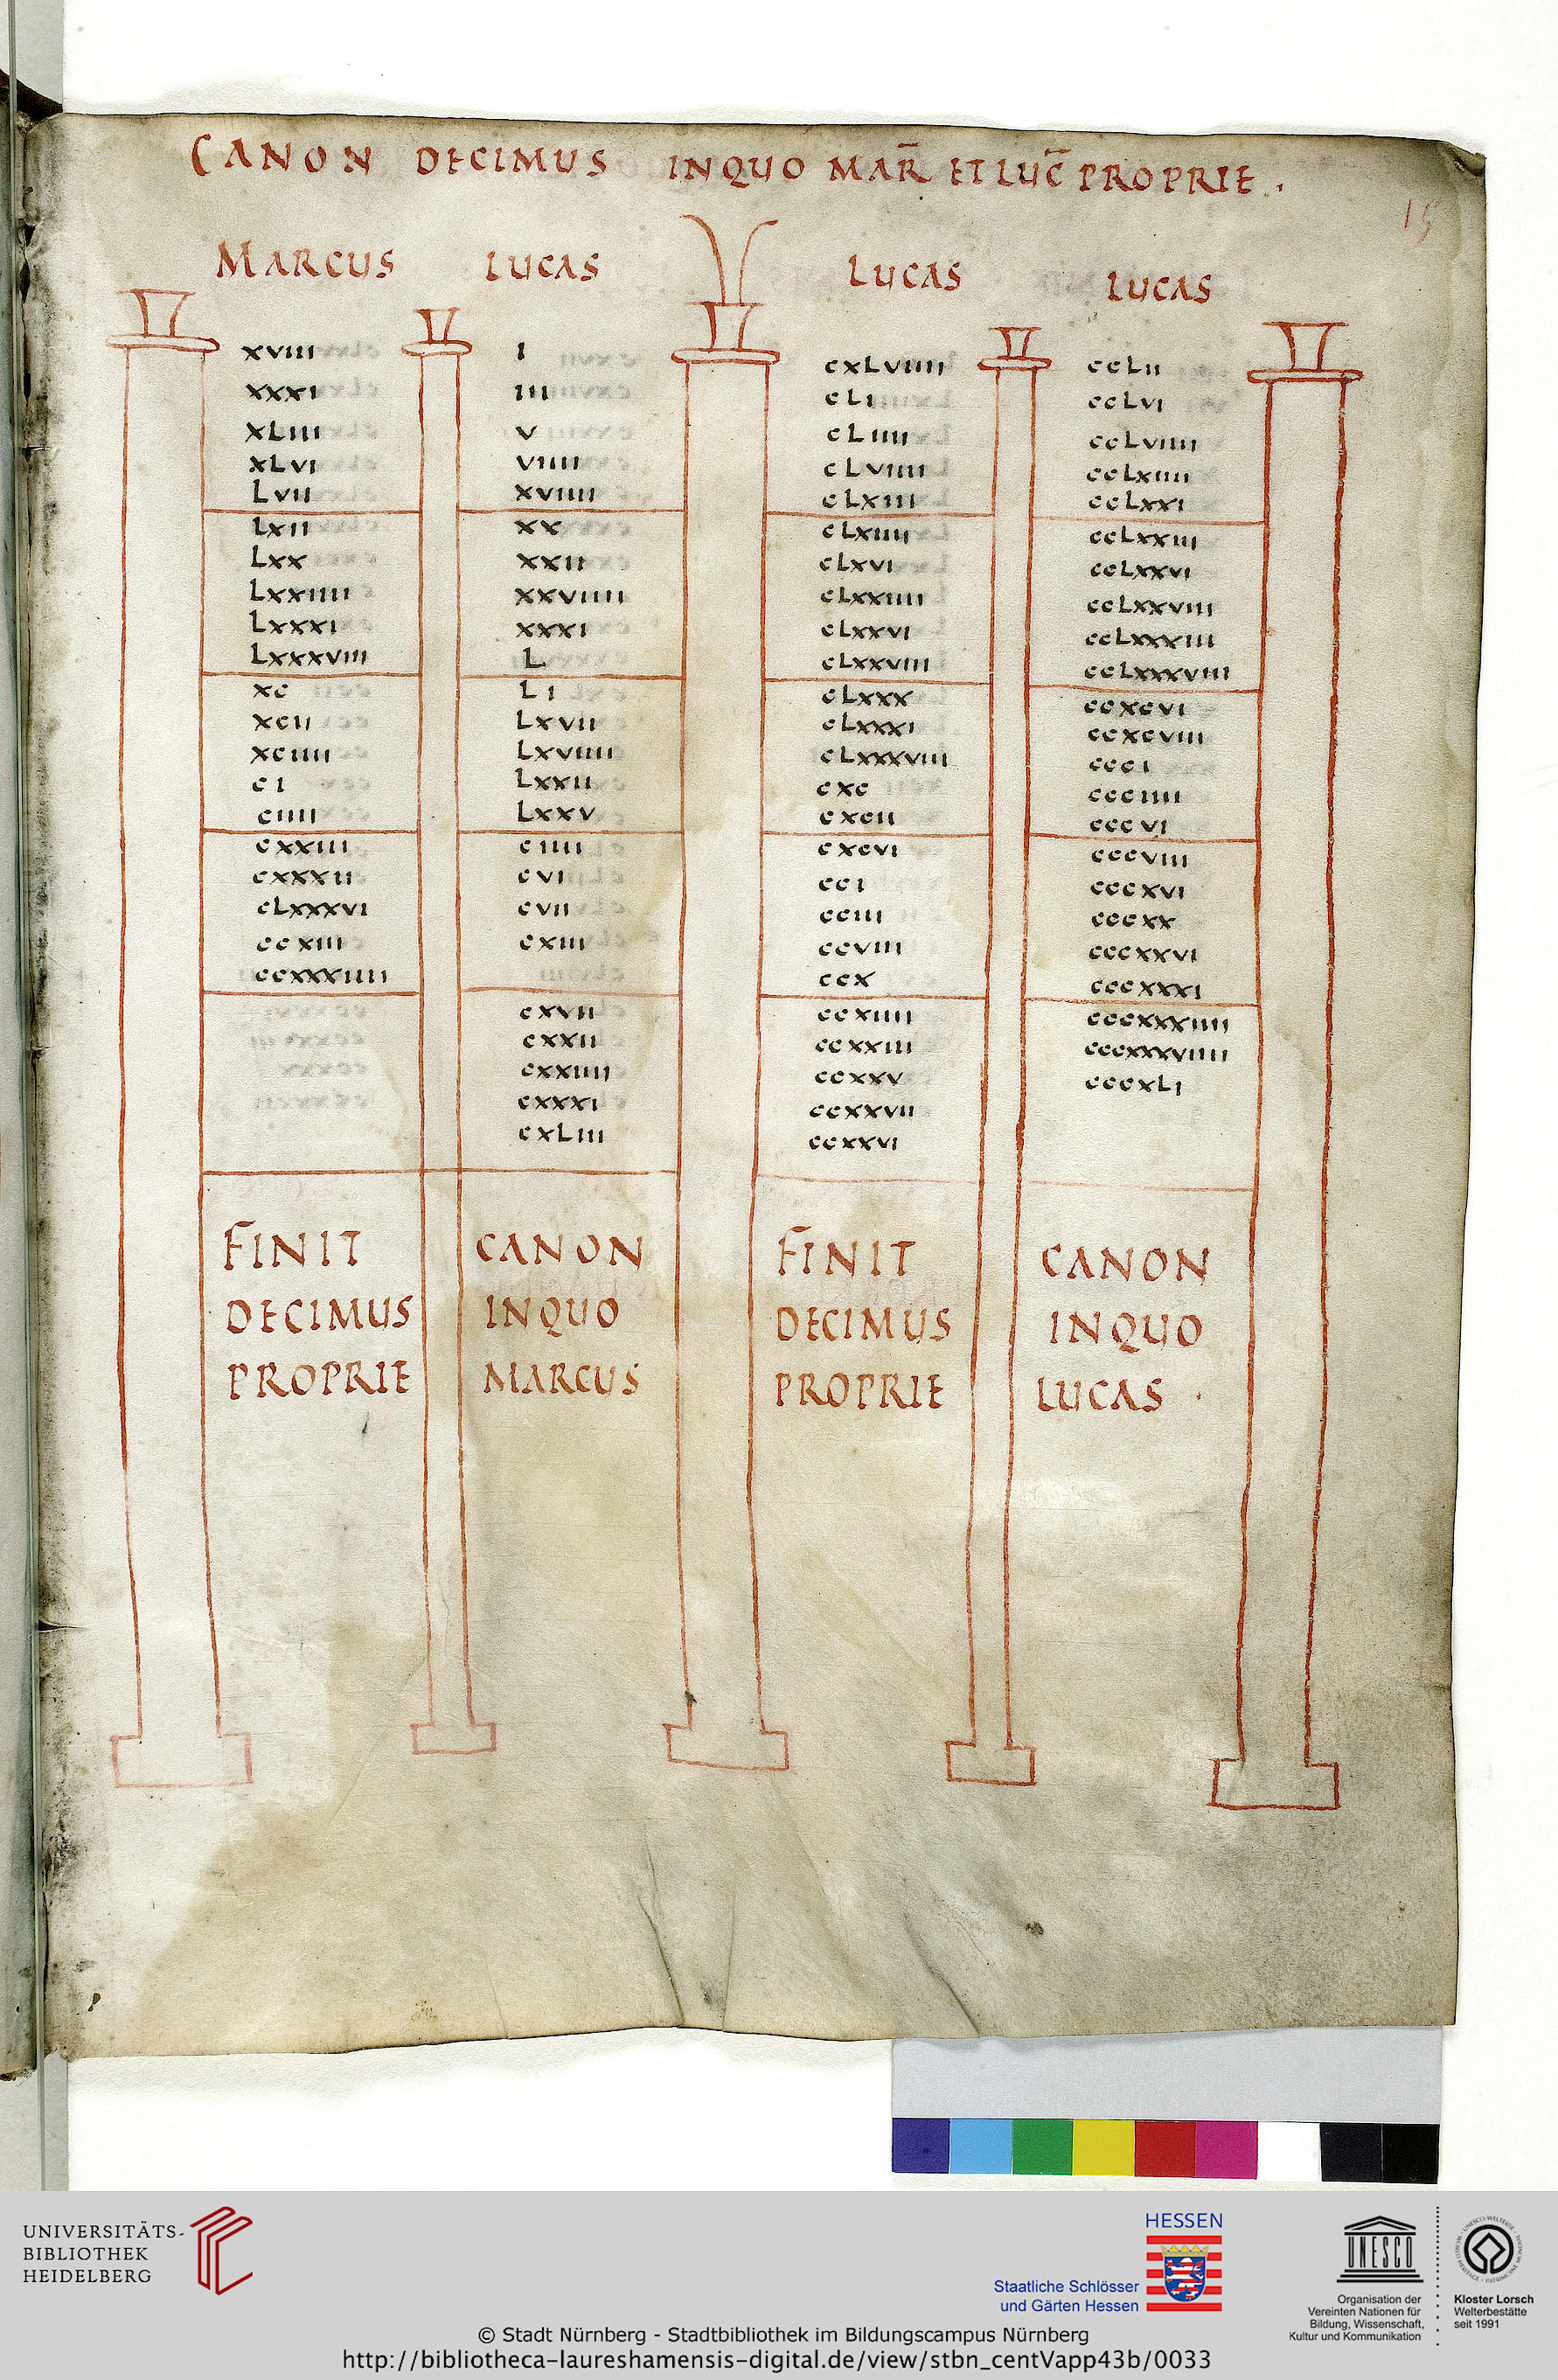 CANON DECIMUS INQUO MAR̅ ET LUC̅ PROPRIE .
15
MARCUS LUCAS LUCAS LUCAS
xviii i cxLviiii ccLii
xxxi iii cLi ccLvi
xLiii v cLiiii ccLviiii
xLvi viiii cLviiii ccLxiiii
Lvii xviiii cLxiii ccLxxi
Lxii xx cLxiiii ccLxxiii
Lxx xxii cLxvi ccLxxvi
Lxxiiii xxviiii cLxxiiii ccLxxviii
Lxxxi xxxi cLxxvi ccLxxxiii
Lxxxviii L cLxxviii ccLxxxviii
xc Li cLxxx ccxcvi
xcii Lxvii cLxxxi ccxcviii
xciiii Lxviiii cLxxxviii ccci
ci Lxxii cxc ccciiii
ciiii Lxxv cxcii cccvi
cxxiii ciiii cxcvi cccviii
cxxxii cvi cci cccxvi
cLxxxvi cvii cciii cccxx
ccxiii cxiii ccviii cccxxvi
ccxxxiiii ccx cccxxxi
cxvii ccxiiii cccxxxiiii
cxxii ccxxiii cccxxxviiii
cxxiiii ccxxv cccxLi
cxxxi ccxxvii
cxLiii ccxxvi
FINIT CANON FINIT CANON
DECIMUS INQUO DECIMUS INQUO
PROPRIE MARCUS PROPRIE LUCAS .
UNIVERSITÄTS-
BIBLIOTHEK
HEIDELBERG
HESSEN
Staatliche Schlösser
und Gärten Hessen
UNESCO
Organisation der
Vereinten Nationen für
Bildung, Wissenschaft,
Kultur und Kommunikation
Kloster Lorsch
Welterbestätte
seit 1991
© Stadt Nürnberg - Stadtbibliothek im Bildungscampus Nürnberg
http://bibliotheca-laureshamensis-digital.de/view/stbn_centVapp43b/0033